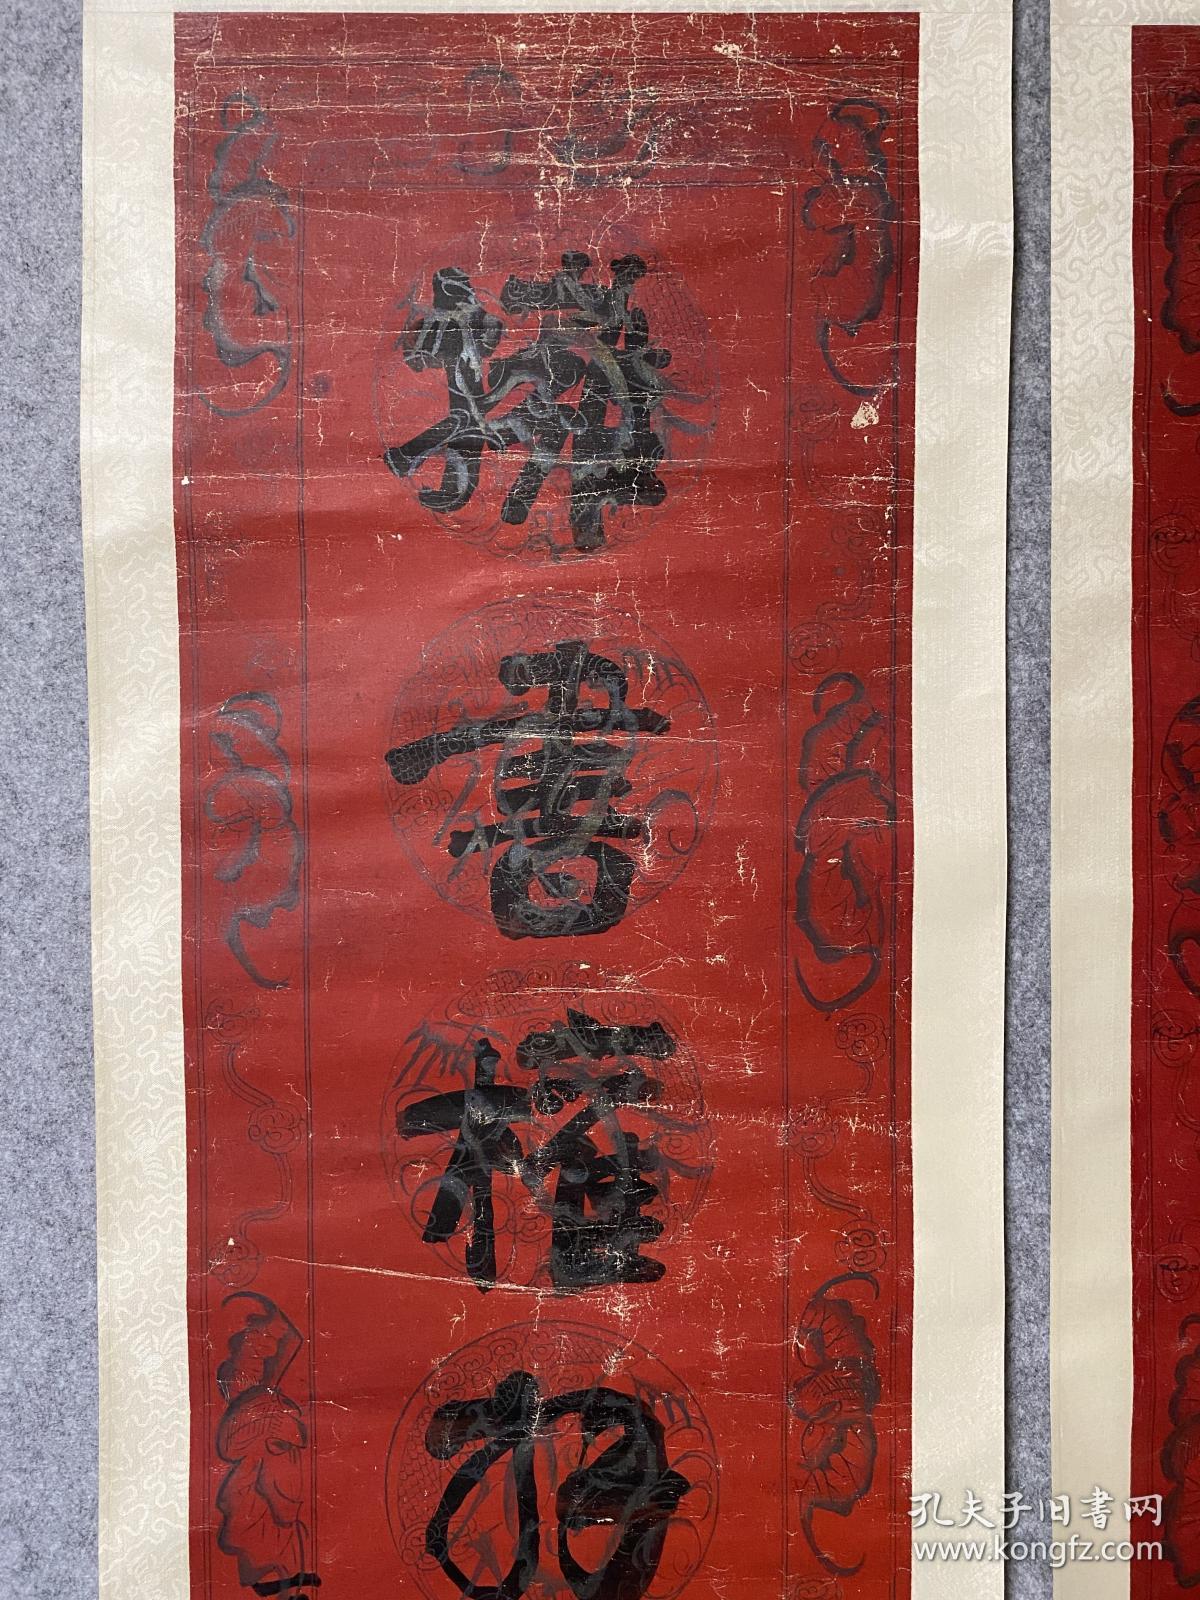 擁
書
權
孔夫子旧書网
www.kongfz.com